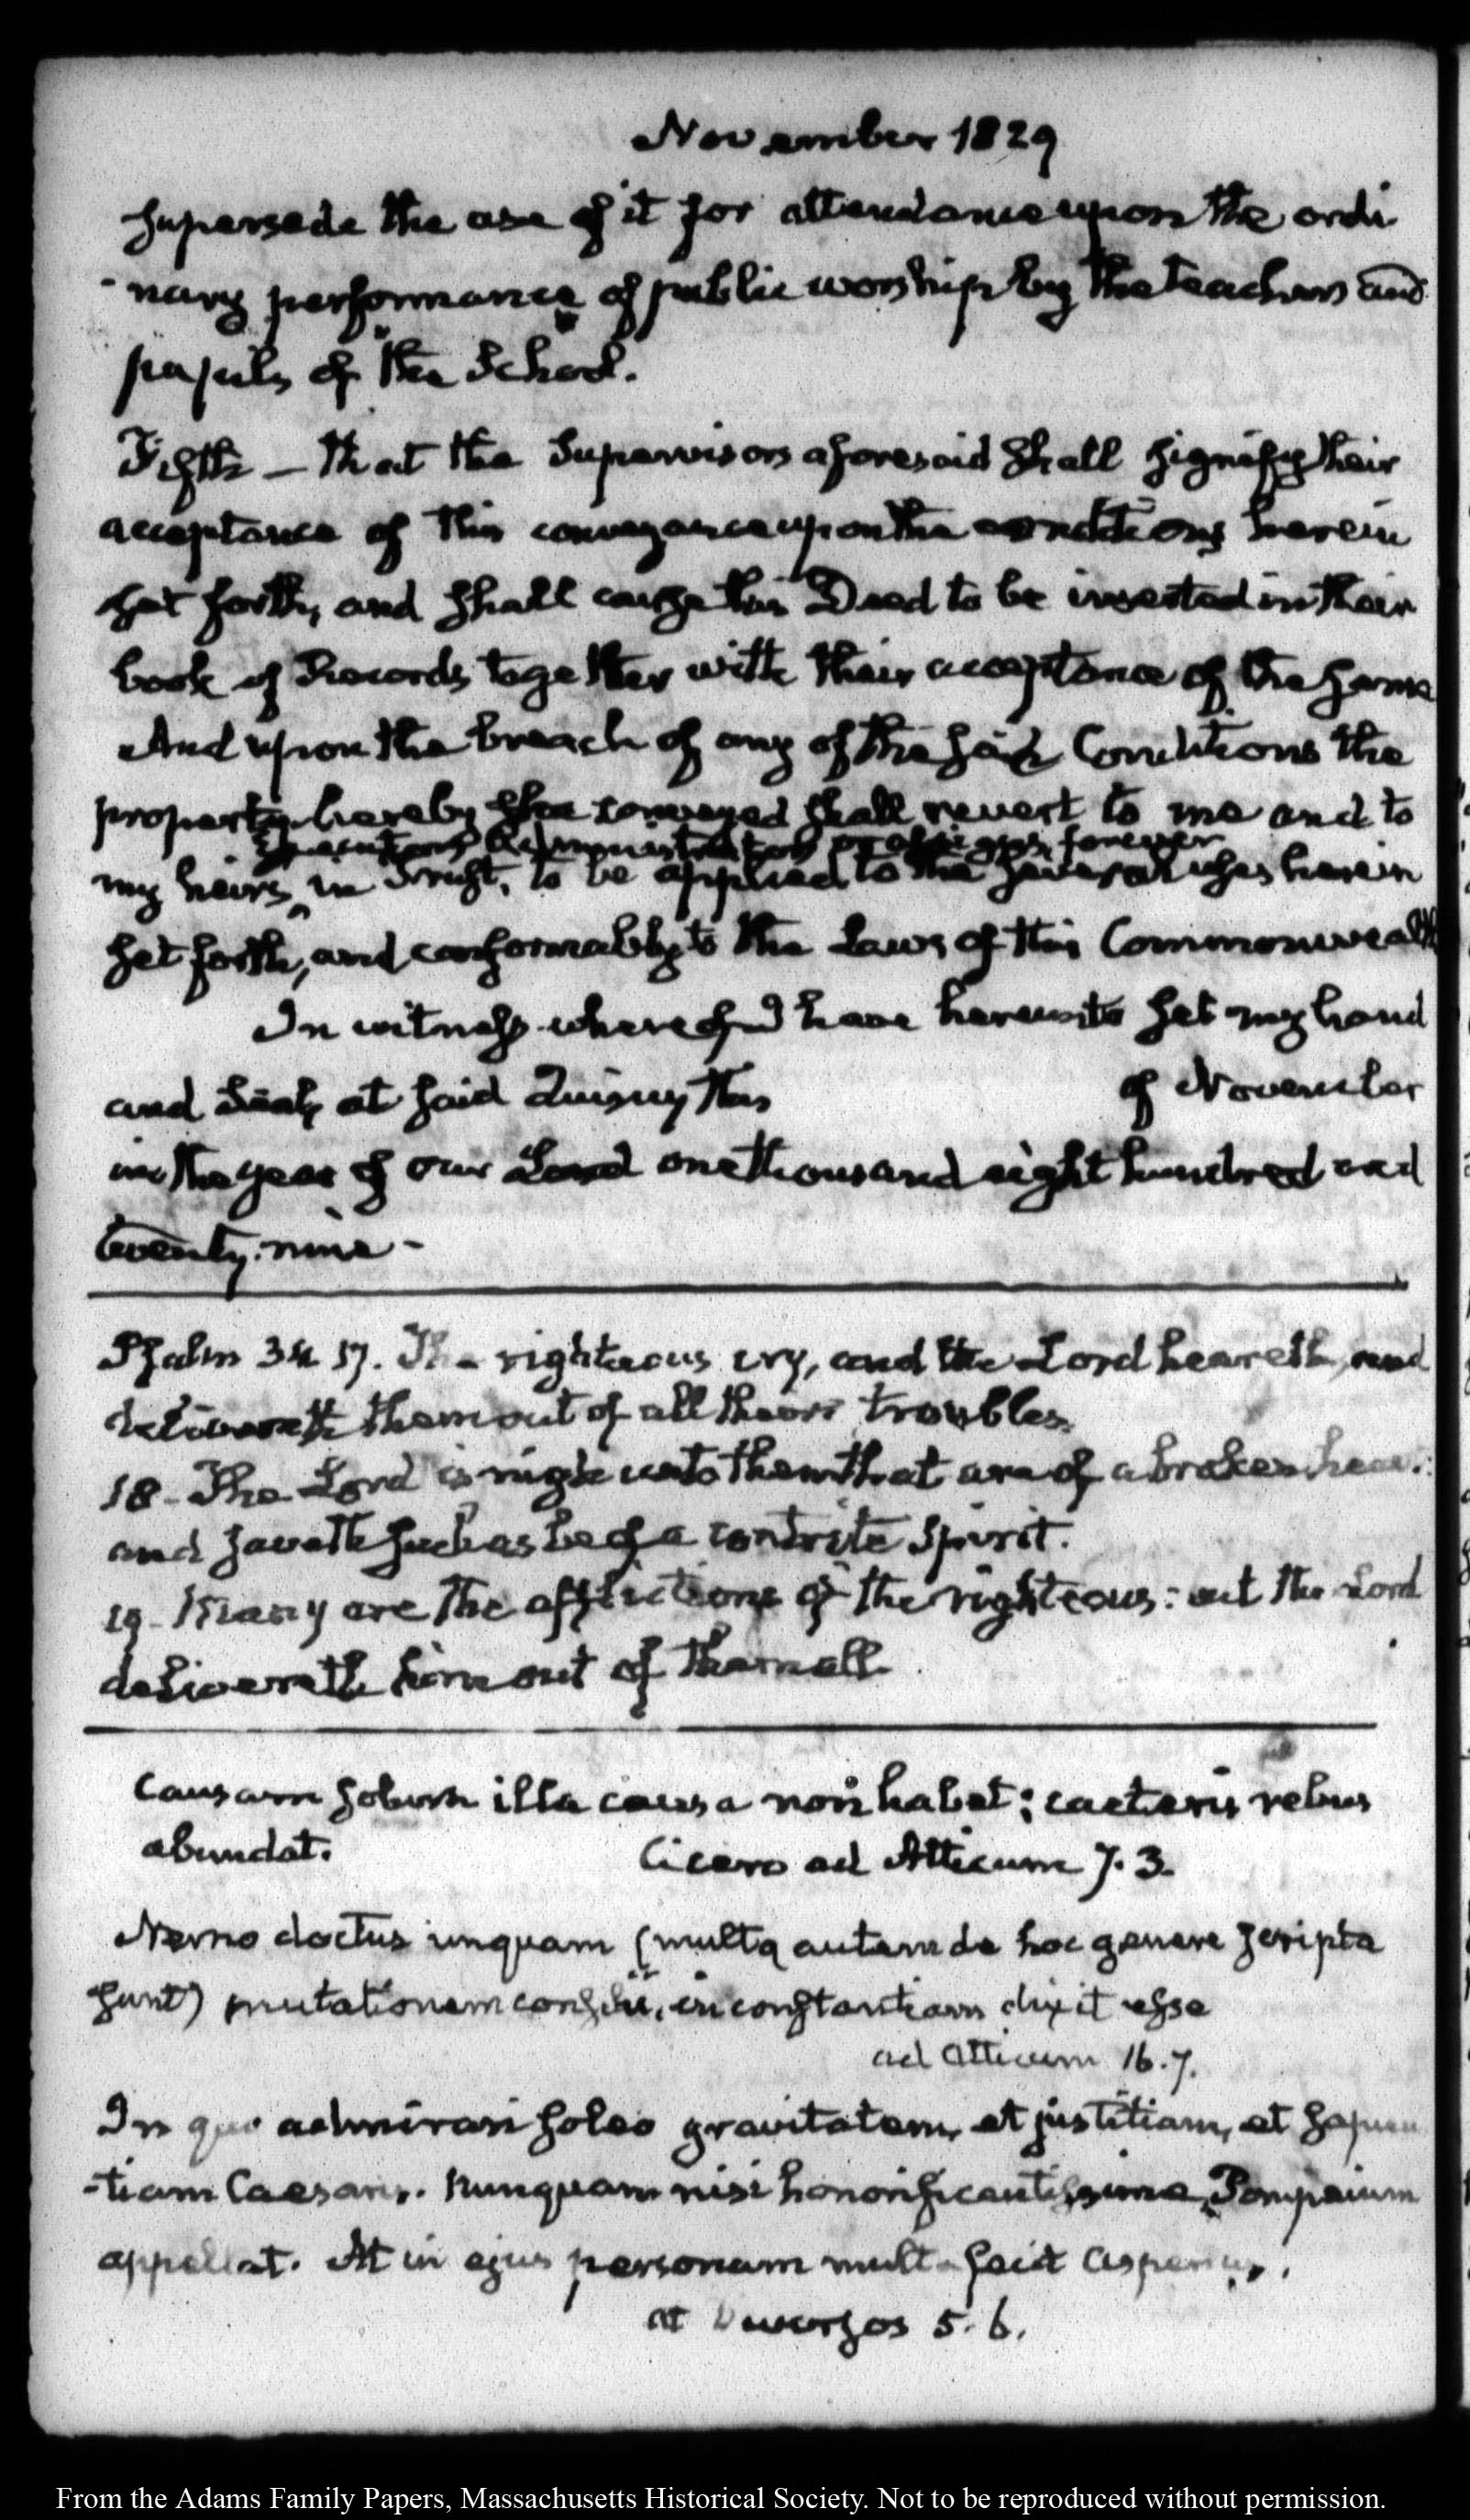 November 1829
supersede the use of it for attendance upon the ordi
-nary performance of public worship by the teachers and
pupils of the School.
Fifth — that the Supervisors aforesaid shall signify their
acceptance of this conveyance upon the conditions herein
set forth, and shall cause this Deed to be inserted in their
book of Records together with their acceptance of the same
And upon the breach of any of the said Conditions the
property hereby conveyed shall revert to me and to
Executors Administrators or assigns forever
my heirs in Trust, to be applied to the several uses herein
set forth, and conformably to the Laws of this Commonwealth
In witness whereof I have hereunto set my hand
and Seal, at said Quincy this of November
in the year of our Lord one thousand eight hundred and
twenty-nine -
Psalm 34. 17. The righteous cry, and the Lord heareth, and
delivereth them out of all their troubles.
18 - The Lord is nigh unto them that are of a broken heart:
and saveth such as be of a contrite Spirit.
19 - Many are the afflictions of the righteous: but the Lord
delivereth him out of them all.
Causam solum illa causa non habet; caeteris rebus
abundat.
Cicero ad Atticum 7. 3.
Nemo doctus unquam (multa autem de hoc genere scripta
sunt) mutationem consilii, inconstantiam dixit esse
ad Atticum 16. 7.
In quo admirari soleo gravitatem, et justitiam, et sapien
-tiam Caesaris. Nunquam nisi honorificentissime Pompeium
appellat. At in ejus personam multa fecit asperius.
5. 6.
From the Adams Family Papers, Massachusetts Historical Society. Not to be reproduced without permission.